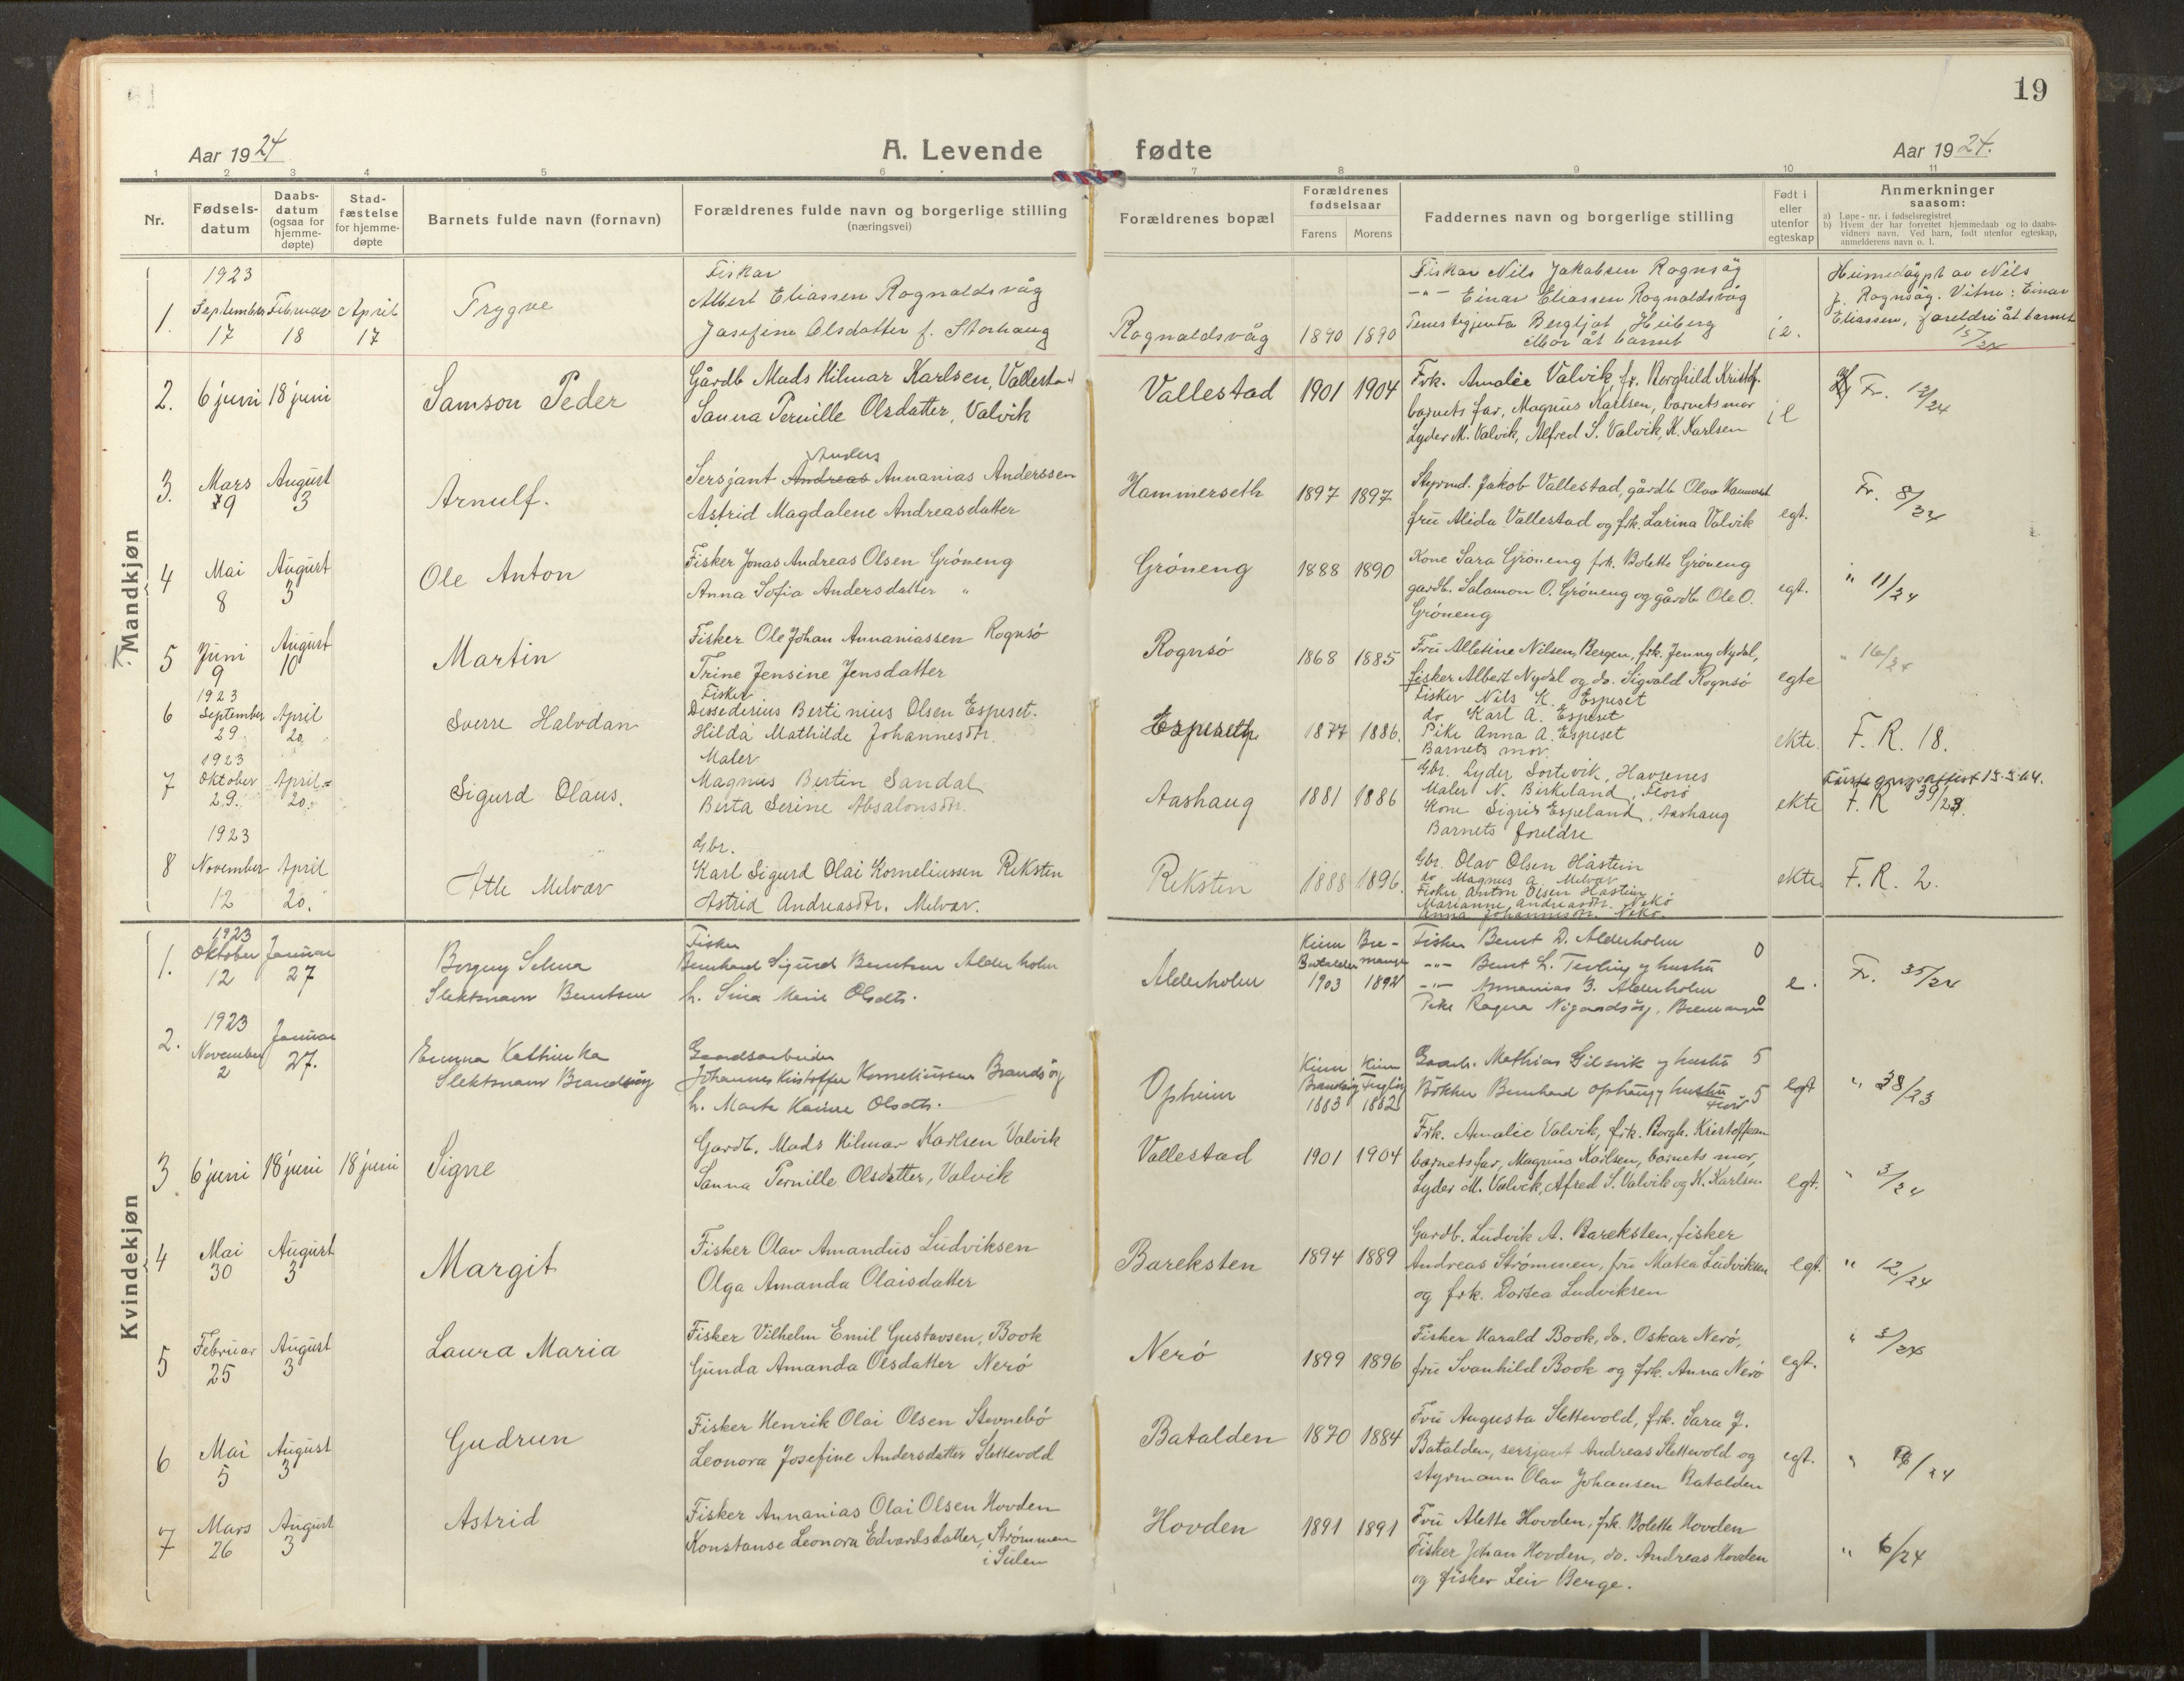 19
Aar 1924
A. Levende fødte
Aar 1924.
1 2 3 4 5 6 7 8 9 10 11
Nr.
Fødsels-
datum
Daabs-
datum
(ogsaa for
hjemme-
døpte)
Stad-
fæstelse
for hjemme-
døpte
Barnets fulde navn (fornavn)
Forældrenes fulde navn og borgerlige stilling
(næringsvei)
Forældrenes bopæl
Forældrenes
fødselsaar
Farens Morens
Faddernes navn og borgerlige stilling
Født i
eller
utenfor
egteskap
Anmerkninger
saasom:
a) Løpe-nr. i fødselsregistret
b) Hvem der har forrettet hjemmedaab og to daabs-
vidners navn. Ved barn, født utenfor egteskap,
anmelderens navn o. l.
Mandkjøn
1.
1923
September
17
Februar
18
April
17
Trygve
Fiskar
Albert Eliassen Rognaldsvåg
Josefine Olsdatter f. Storhaug
Rognaldsvåg
1890 1890
Fiskar Nils Jakobsen Rognsåg
-"- Einar Eliassen Rognaldsvåg
Tenestegjenta Bergljot Heiberg
Mor åt barnet
i e.
Heimedøypt av Nils
J. Rognsåg. Vitne: Einar
Eliassen, foreldri åt barnet
15/24
2.
6 juni
18 juni
Samson Peder
Gårdb Mads Hilmar Karlsen, Vallestad
Sanna Pernille Olsdatter, Valvik
Vallestad
1901 1904
Frk. Amalie Valvik, fr. Borghild Kristof.
barnets far, Magnus Karlsen, barnets mor
Lyder M. Valvik, Alfred S. Valvik, K. Karlsen
i e
Fr. 12/24
3.
Mars
9
August
3
Arnulf.
Anders
Sersjant Andreas Annanias Anderssen
Astrid Magdalene Andreasdatter
Hammerseth
1897 1897
Styrmd. Jakob Vallestad, gårdb Olav Hammerset
fru Alida Vallestad og frk. Larina Valvik
egt.
Fr. 8/24
4
Mai
8
August
3
Ole Anton
Fisker Jonas Andreas Olsen Grøneng
Anna Sofia Andersdatter "
Grøneng
1888 1890
Kone Sara Grøneng frk. Bolette Grøneng
gardb. Salamon O. Grøneng og gårdb Ole O.
Grøneng
egt.
" 11/24
5
Juni
9
August
10
Martin
Fisker Ole Johan Annaniassen Rognsø
Trine Jensine Jensdatter
Rognsø
1868 1885
Fru Alletine Nilsen, Bergen, frk. Jenny Nydal,
fisker Albert Nydal og do. Sigvald Rognsø
egte
" 16/24
6
1923
September
29
April
20
Sverre Halvdan
Fisker
Dessederius Bertinius Olsen Espeset.
Hilda Mathilde Johannesdtr.
Espeseth
1877 1886.
Fisker Nils K. Espeset
do Karl A. Espeset
Pike Anna A. Espeset
Barnets mor
ekte.
F. R. 18.
7
1923
Oktober
29.
April
20.
Sigurd Olaus.
Maler
Magnus Bertin Sandal
Berta Serine Absalonsdtr.
Aashaug
1881 1886
Gbr. Lyder Sortevik, Havrenes
Maler N. Birkeland, Florø
Kone Sigrid Espeland, Aashaug
Barnets foreldre
ekte
F. R 39/23.
8
1923
November
12
April
20.
Atle Melvær
Gbr.
Karl Sigurd Olai Korneliussen Reksten
Astrid Andreasdtr. Melvær.
Reksten
1888 1896.
Gbr. Olav Olsen Håstein
do Magnus A. Melvær
Fisker Anton Olsen Håstein
Marianne Andreasdtr. Nekø
Anna Johannesdtr. Nekø.
ekte.
F. R. 2.
Kvindekjøn
1.
1923
Oktober
12
Januar
27
Borgny Selma
Slektsnavn Berntsen
Fisker
Bernhard Sigurd Berntsen Alderholm
h. Sina Marie Olsdtr.
Alderholm
Kinn Bre-
Batalden manger
1903 1892
Fisker Bernt D. Alderholm
-"- Bernt L. Tevling og hustru
-"- Annanias B. Alderholm
Pike Ragna Nigardsøy, Bremanger
e.
Fr. 35/24
2.
1923
November
2
Januar
27.
Emma Kathinka
Slektsnavn Brandsøy
Gaardsarbeider
Johannes Kristoffer Korneliussen Brandsøy
h. Marte Karine Olsdtr.
Opheim
Kinn Kinn
Brandsøy
1883 1882
Gaarb. Mathias Gilsvik og hustru 5
Bøkker Bernhard Ophaug og hustru 5
Florø
egt
" 38/23
3
6 juni
18 juni
18 juni
Signe
Gardb. Mads Hilmar Karlsen Valvik
Sanna Pernille Olsdatter, Valvik
Vallestad
1901 1904
Frk. Amalie Valvik, frk. Borgh. Kristoffersen
barnets far, Magnus Karlsen, barnets mor,
Lyder M. Valvik, Alfred S. Valvik og K. Karlsen
egt.
" 3/24
4
Mai
30
August
3
Margit
Fisker Olav Amandus Ludviksen
Olga Amanda Olaisdatter
Bareksten
1894 1889
Gardb. Ludvik A. Bareksten, fisker
Andreas Strømmen, fru Matea Ludviksen
og frk. Dortea Ludviksen
egt.
" 12/24
5
Februar
25
August
3
Laura Maria
Fisker Vilhelm Emil Gustavsen, Book
Gunda Amanda Olsdatter Nerø
Nerø
1899 1896
Fisker Harald Book, do. Oskar Nerø,
fru Svanhild Book og frk. Anna Nerø
egt.
" 3/24
6
Mai
5
August
3
Gudrun
Fisker Henrik Olai Olsen Stevnebø
Leonora Josefine Andersdatter Slettevold
Batalden
1870 1884
Fru Augusta Slettevold, frk. Sara J.
Batalden, sersjant Andreas Slettevold og
styrmann Olav Johansen Batalden
egt.
7
Mars
26
August
3
Astrid
Fisker Annanias Olai Olsen Hovden
Konstanse Leonora Edvardsdatter, Strømmen
i Sulen
Hovden
1891 1891
Fru Alette Hovden, frk. Bolette Hovden
Fisker Johan Hovden, do. Andreas Hovden
og fisker Leiv Berge.
" 6/24